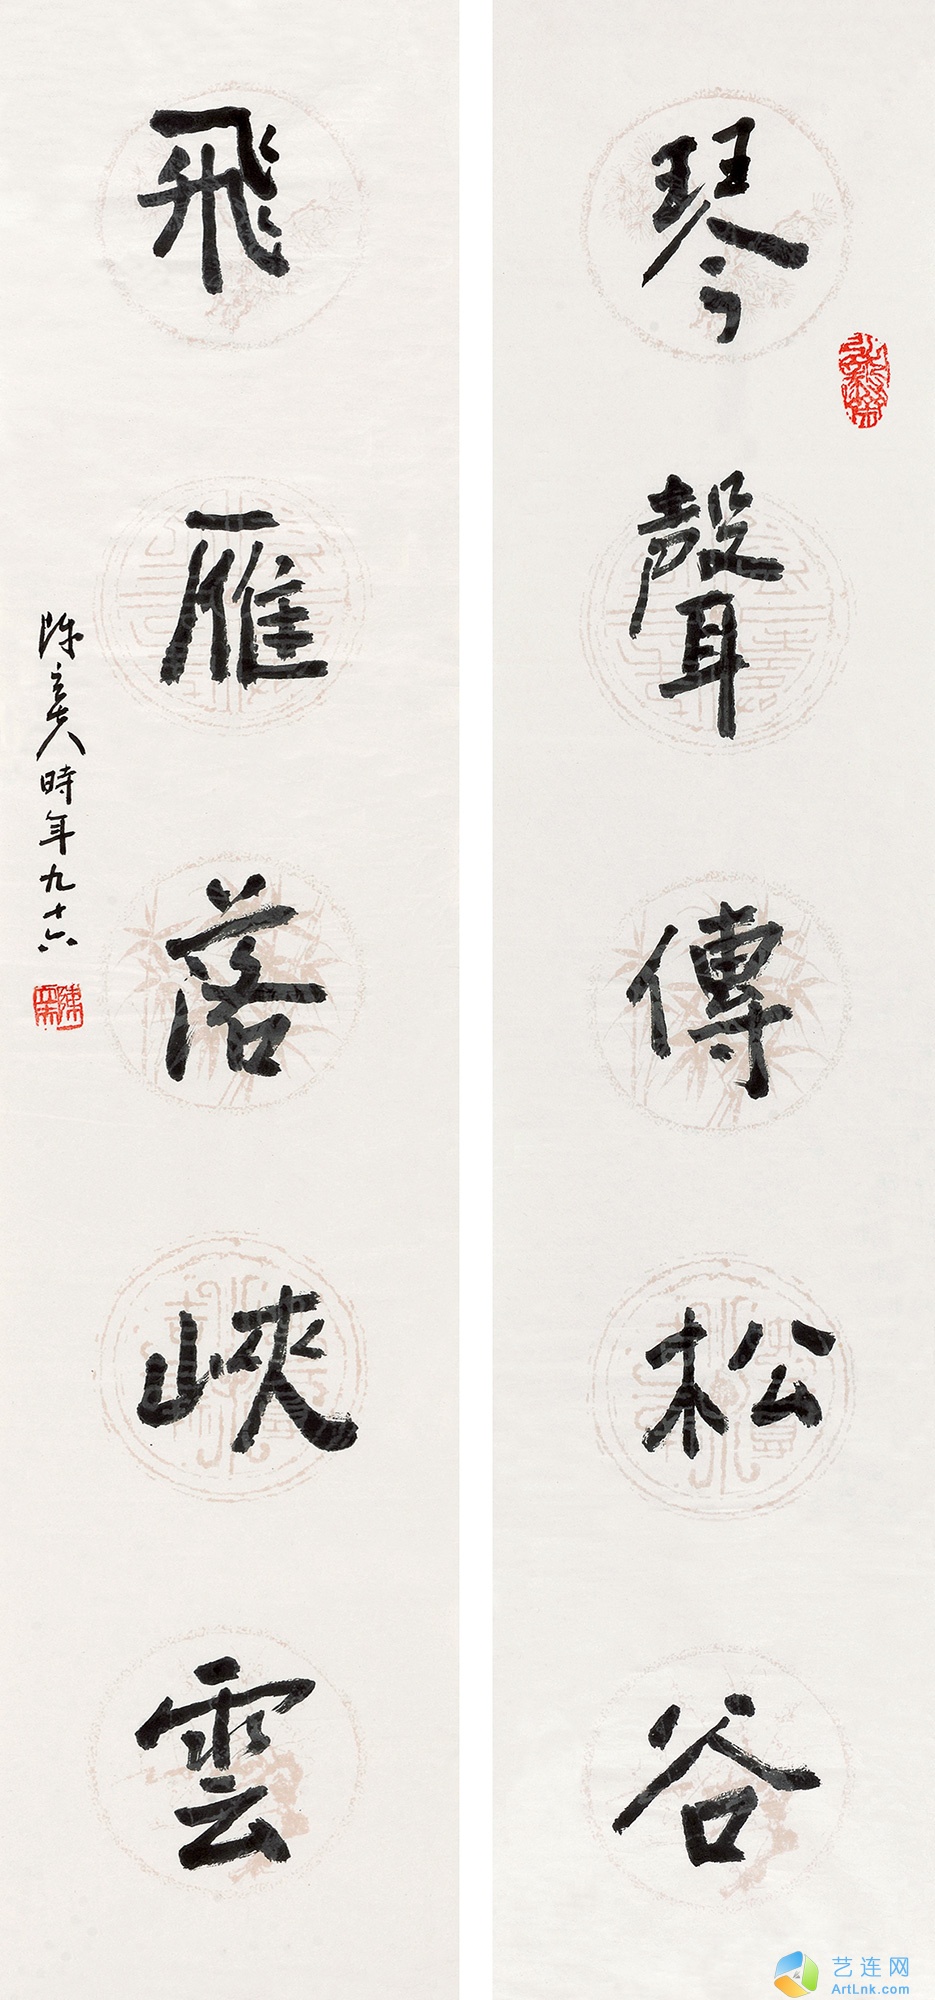 琴聲傳松谷
飛雁落峽雲
陳立夫時年九十六
艺连网
ArtLnk.com